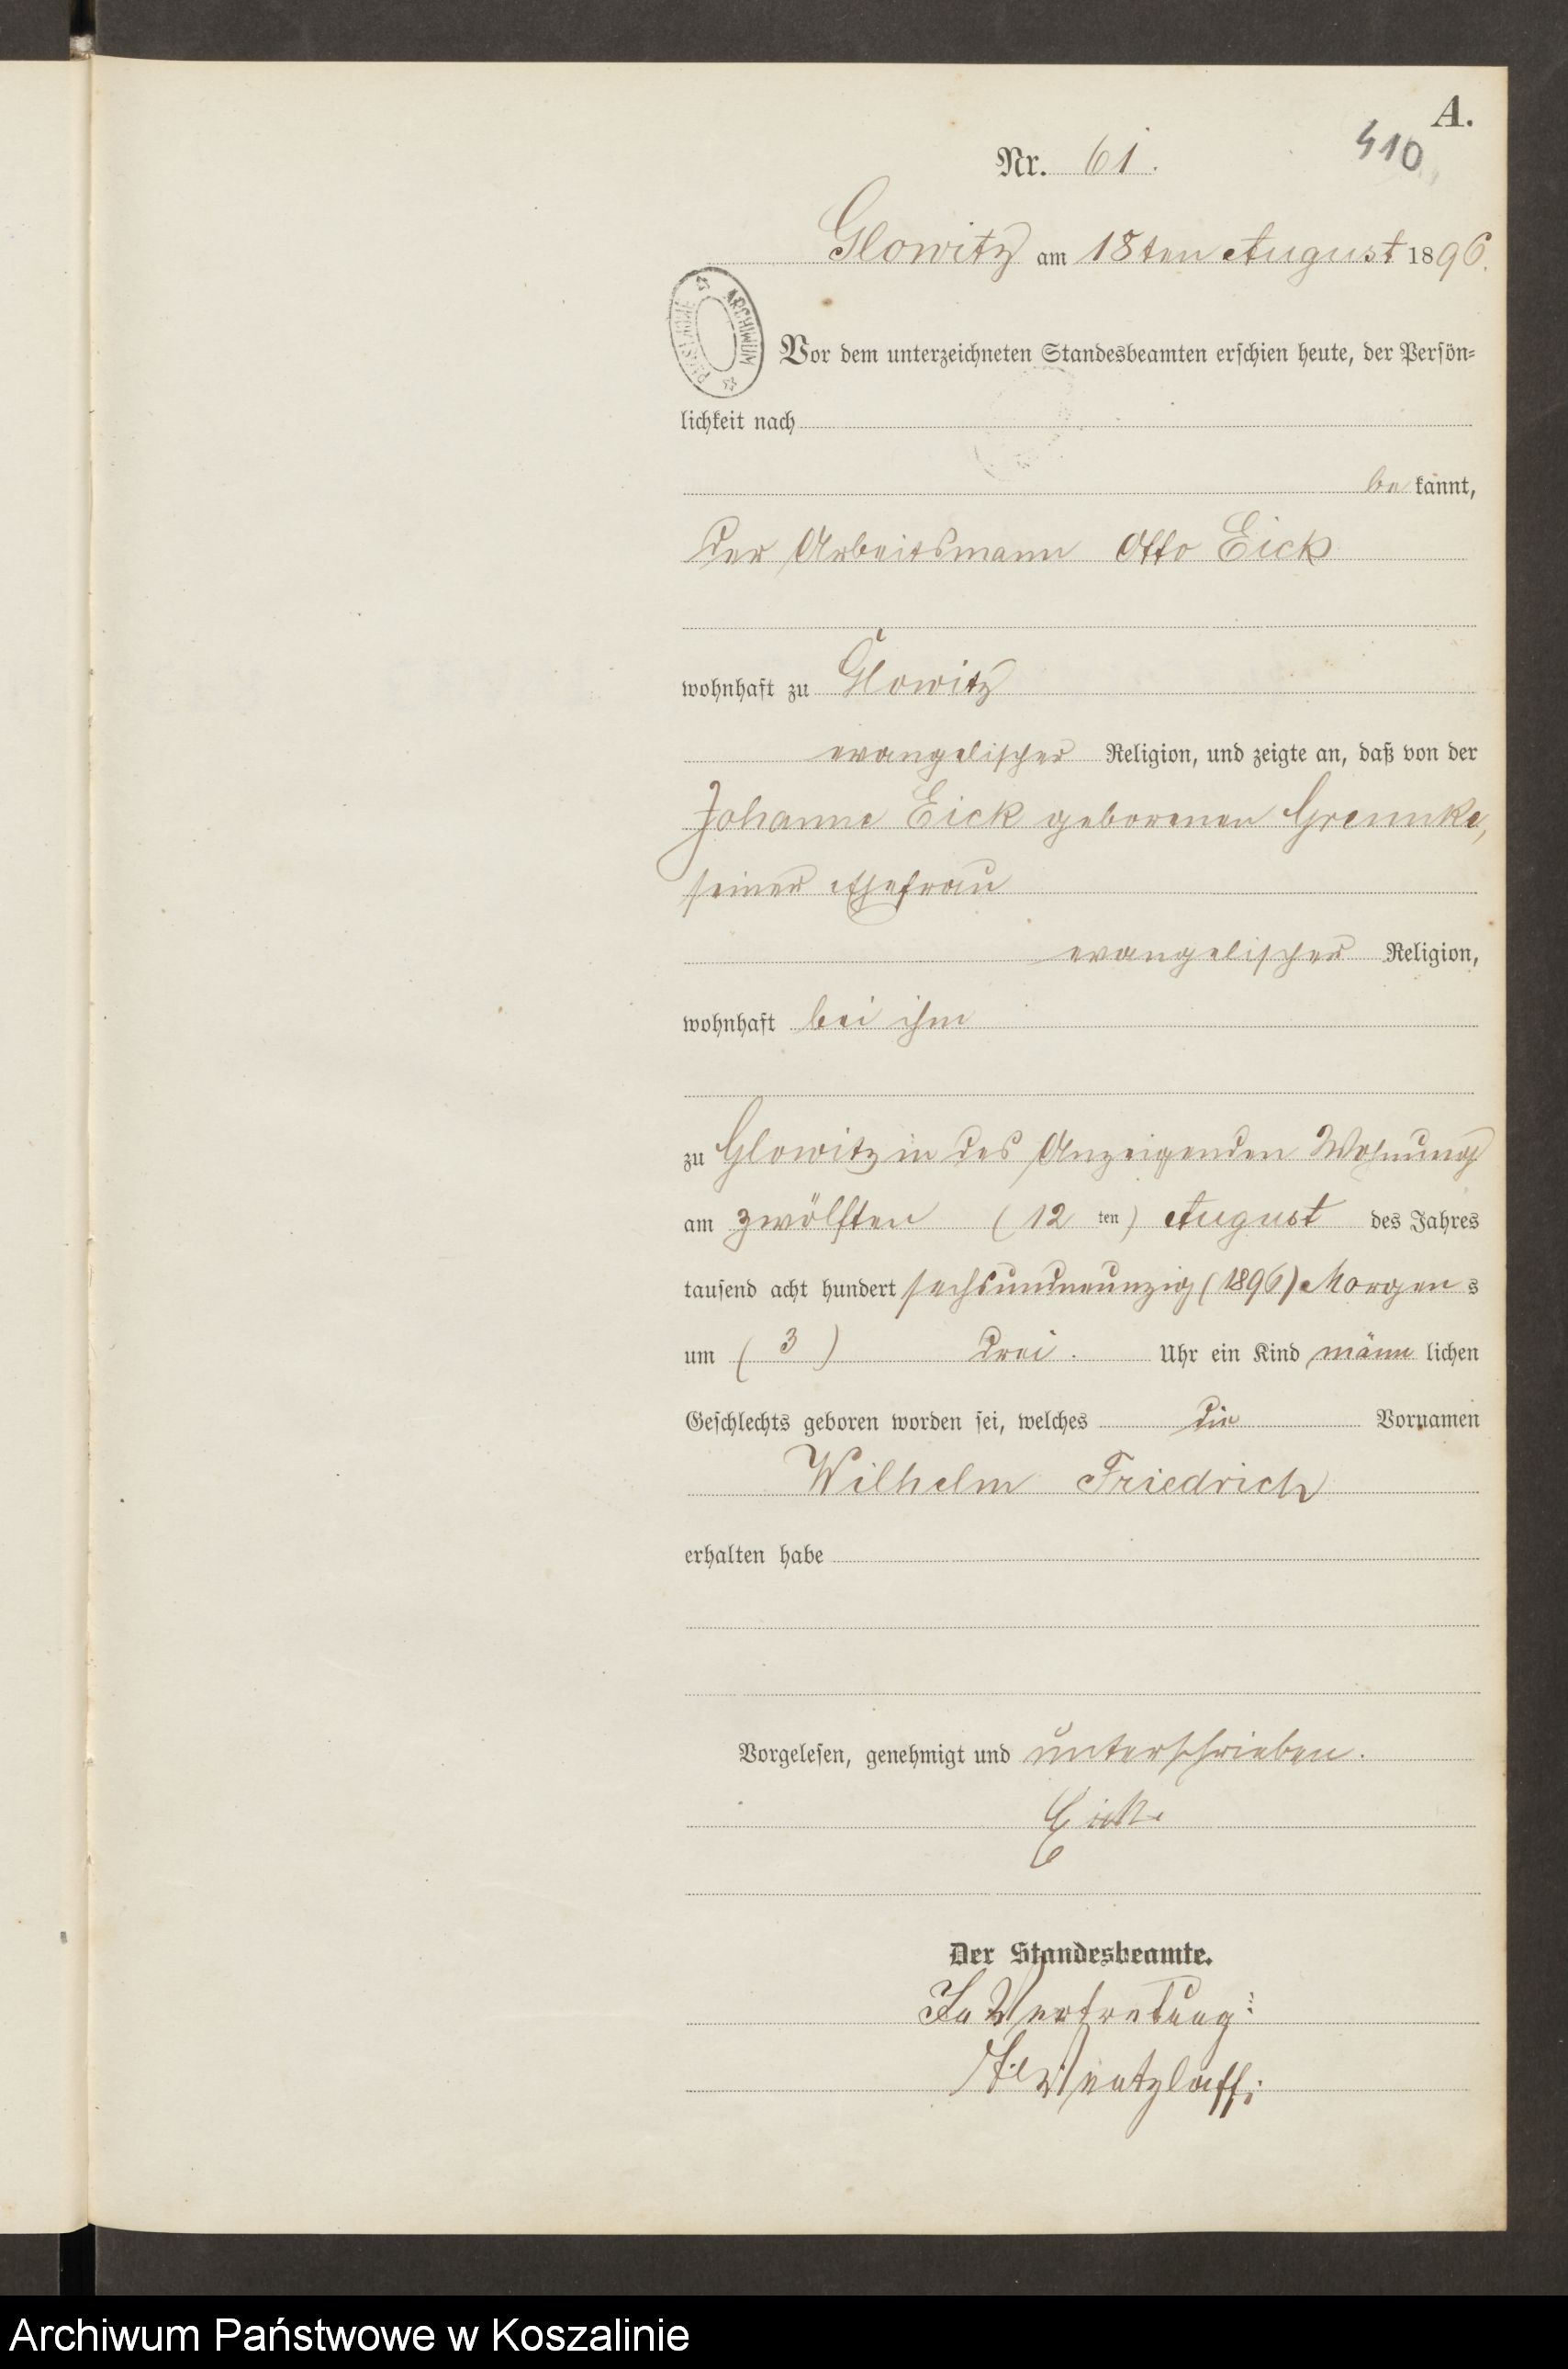 A.
410
Nr. 61.
Glowitz am 18ten August 1896.
PAŃSTWOWE ARCHIWUM
Vor dem unterzeichneten Standesbeamten erschien heute, der Persön-
lichkeit nach
be kannt,
der Arbeitsmann Otto Eick
wohnhaft zu Glowitz
evangelischer Religion, und zeigte an, daß von der
Johanne Eick geborenen Gremke,
seiner Ehefrau
evangelischer Religion,
wohnhaft bei ihm
zu Glowitz in des Anzeigenden Wohnung
am zwölften (12 ten) August des Jahres
tausend acht hundert sechsundneunzig (1896) Morgen s
um (3) drei. Uhr ein Kind männ lichen
Geschlechts geboren worden sei, welches die Vornamen
Wilhelm Friedrich
erhalten habe
Vorgelesen, genehmigt und unterschrieben.
Eick
Der Standesbeamte.
In Vertretung:
Wentzlaff
Archiwum Państwowe w Koszalinie